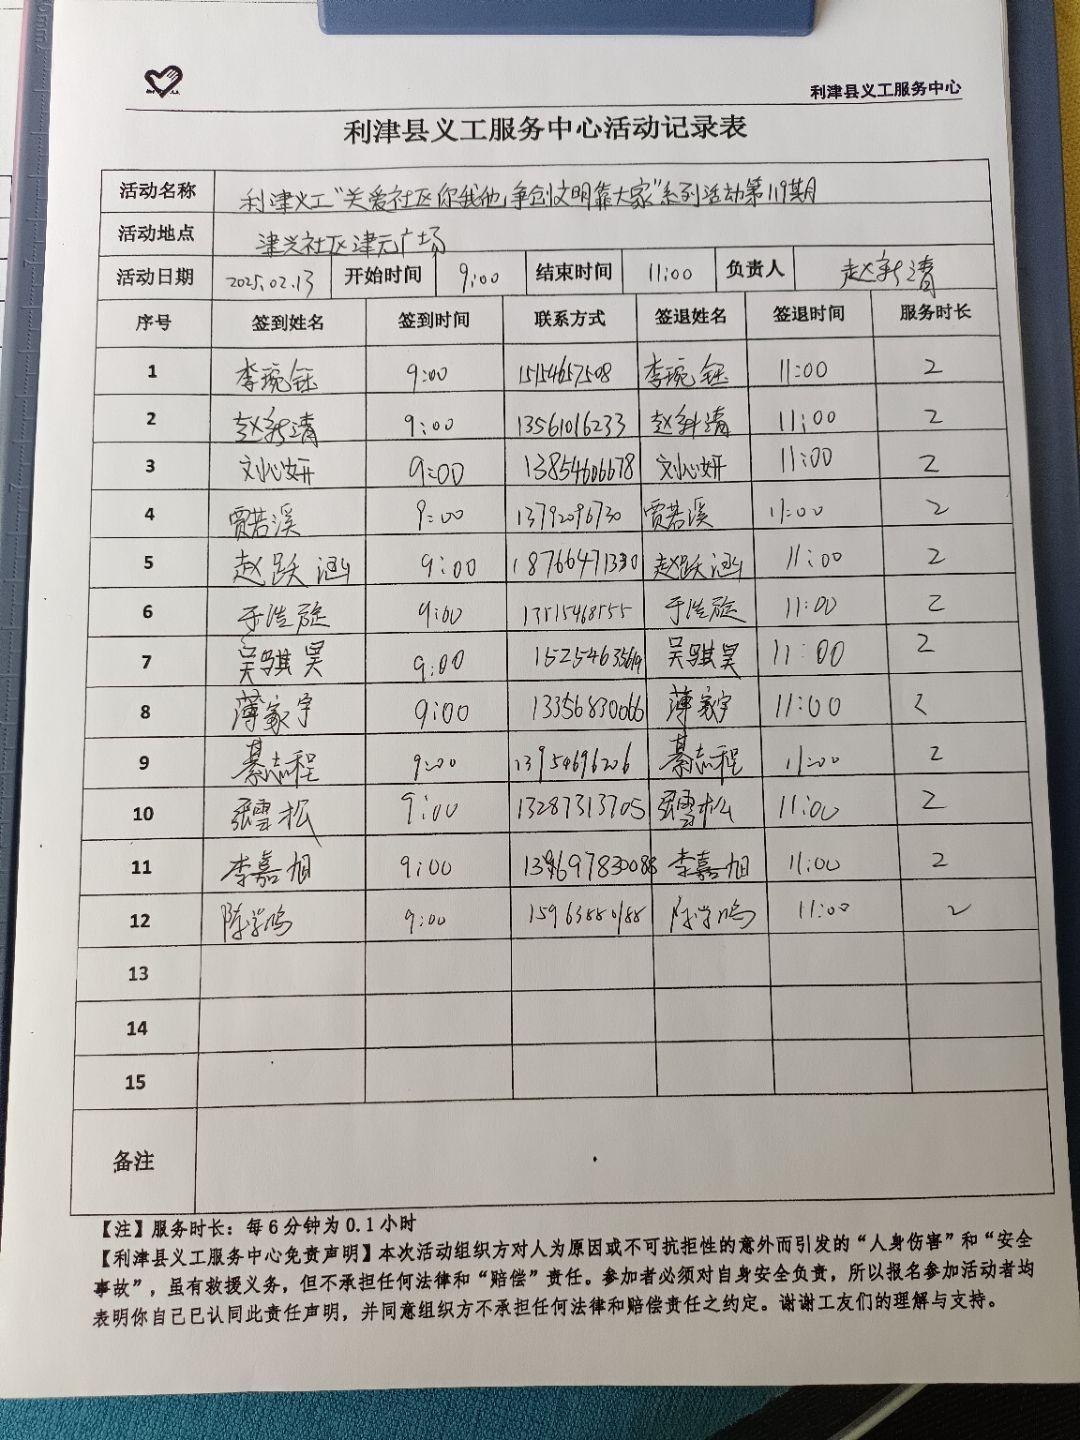 利津县义工服务中心
利津县义工服务中心活动记录表
活动名称 利津义工“关爱社区你我他,争创文明靠大家”系列活动第119期
活动地点 津兴社区津元广场
活动日期 2025.02.13 开始时间 9:00 结束时间 11:00 负责人 赵新清
序号 签到姓名 签到时间 联系方式 签退姓名 签退时间 服务时长
1 李琬钰 9:00 15154657508 李琬钰 11:00 2
2 赵新清 9:00 13561016233 赵新清 11:00 2
3 刘心妍 9:00 13854606678 刘心妍 11:00 2
4 贾若溪 9:00 13792096730 贾若溪 11:00 2
5 赵跃涵 9:00 18766471330 赵跃涵 11:00 2
6 于浩旋 9:00 13515468555 于浩旋 11:00 2
7 吴骐昊 9:00 吴骐昊 11:00 2
8 薄家宇 9:00 13356830066 薄家宇 11:00 2
9 綦志程 9:00 13954696206 綦志程 11:00 2
10 张雲松 9:00 13287313705 张雲松 11:00 2
11 李嘉旭 9:00 李嘉旭 11:00 2
12 陈学鸣 9:00 15963880188 陈学鸣 11:00 2
13
14
15
备注
【注】服务时长：每6分钟为0.1小时
【利津县义工服务中心免责声明】本次活动组织方对人为原因或不可抗拒性的意外而引发的“人身伤害”和“安全
事故”，虽有救援义务，但不承担任何法律和“赔偿”责任。参加者必须对自身安全负责，所以报名参加活动者均
表明你自己已认同此责任声明，并同意组织方不承担任何法律和赔偿责任之约定。谢谢工友们的理解与支持。